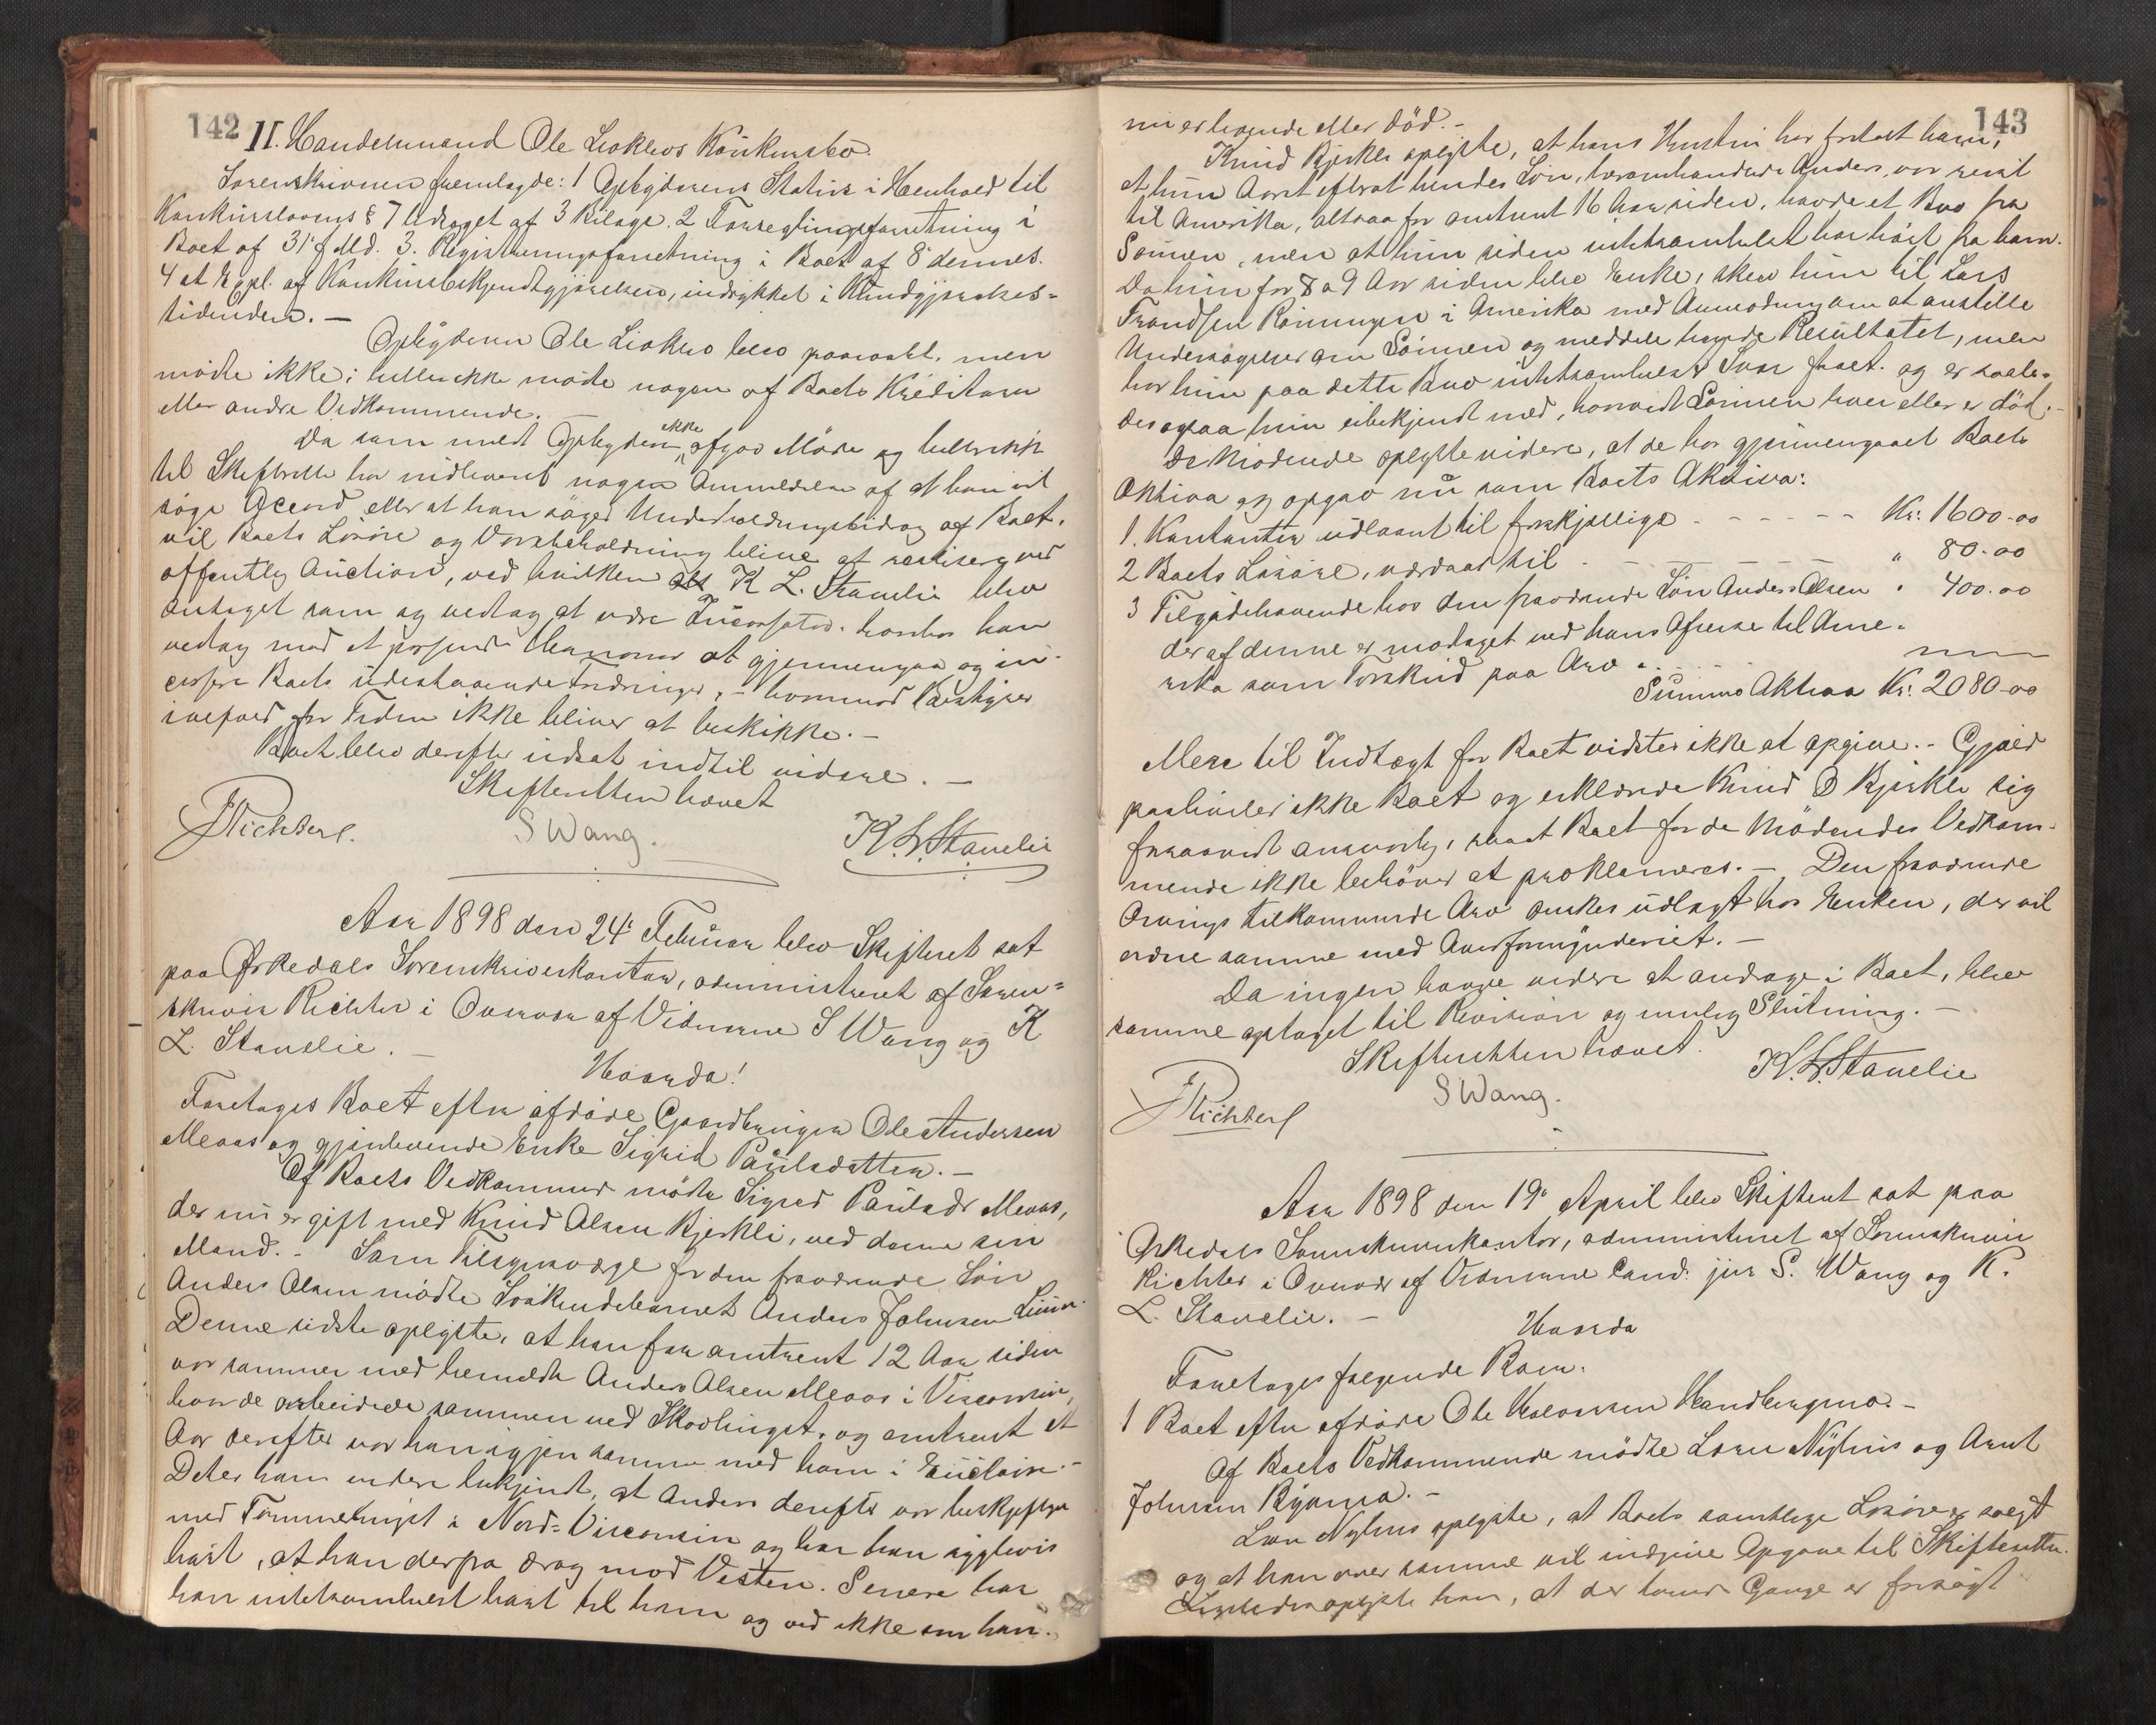 142
II. Handelsmand Ole Liokleos Konkursbo.
Sorenskriveren fremlagde: 1 Opbyderens Status i Henhold til
Konkurslovens § 7 ledsaget af 3 Bilage. 2 Forseglingsforretning i
Boet af 31' f. Md. 3. Registreringsforretning i Boet af 8' dennes.
4 et Expl. af Konkursbekjendtgjørelsen, indrykket i Kundgjørelses-
tidenden. —
Opbyderen Ole Liokleo blev paaraabt, men
mødte ikke; hellerikke mødte nogen af Boets Kreditorer
eller andre Vedkommende. —
Da som meldt Opbyderen ikke afgav Møde og hellerikke
til Skifteretten har indleveret nogen Anmeldelse af at han vil
søge Accord eller at han søger Underholdningsbidrag af Boet,
vil Boets Løsøre og Varebeholdning blive at realisere ved
offentlig Auction, ved hvilken K L. Stavelie blev
antaget som og vedtog at være Incassator, hvorhos han
vedtog mod et Honorar at gjennemgaa og in-
cassere Boets udestaaende Fordringer, – hvorimod Bestyrer
isaefald for Tiden ikke bliver at beskikke. —
Boet blev derefter udsat indtil videre. —
Skifteretten hævet
JRichter. S Wang. K. L. Stavelie
Aar 1898 den 24' Februar blev Skifteret sat
paa Ørkedals Sorenskriverkontor, administreret af Soren-
skriver Richter i Overvær af Vidnerne S Wang og K
L. Stavelie. —
Hvorda!
Foretages Boet efter afdøde Gaardbruger Ole Andersen
Meaas og gjenlevende Enke Sigrid Paulsdatter. —
Af Boets Vedkommende mødte Sigrid Paulsdr Meaas,
der nu er gift med Knud Olsen Bjerkli, ved denne sin
Mand. - Som Tilsynsværge for den fraværende Søn
Anders Olsen mødte Søskendebarnet Anders Johnsen
Denne sidste oplyste, at han for omtrent 12 Aar siden
var sammen med bemeldte Anders Olsen Meaas i Visconsin,
hvor de arbeidede sammen ved Skovhugst, og omtrent et
Aar derefter var han igjen sammen med ham i Euclaire. -
Det er ham videre bekjendt, at Anders derefter var beskjeftiget
med Tømmerhugst i Nord-Visconsin og har han sygglevis
hørt, at han derfra drog mod Vesten. Senere har
han intetsomhelst hørt til ham og ved ikke om han
143
nu er levende eller død. -
Knud Bjerkli oplyste, at hans Hustru har fortalt ham,
at hun Aaret efterat hendes Søn, heromhandlede Anders, var reist
til Amerika, altsaa for omtrent 16 Aar siden, havde et Brev fra
Sønnen, men at hun siden intetsomhelst har hørt fra ham.
Da hun for 8 a 9 Aar siden blev Enke, skrev hun til Lars
Frandsen Rønningen i Amerika med Anmodning om at anstille
Undersøgelser om Sønnen og meddele hende Resultatet, men
har hun paa dette Brev intetsomhelst Svar faaet. og er saale-
des ogsaa hun ubekjendt med, hvorvidt Sønnen lever eller er død. -
De Mødende oplyste videre, at de har gjennemgaaet Boets
Aktiva og opgav nu som Boets Aktiva:
1. Kontanter udlaant til forskjellige - - - - - Kr. 1600.00
2 Boets Løsøre, værdsat til - - - " 80.00
3 Tilgodehavende hos den fraværende Søn Anders Olsen " 400.00
der af denne er modtaget ved hans Afreise til Ame-
rika som Forskud paa Arv
Summa Aktiva Kr. 2080.00
Mere til Indtægt for Boet vidstes ikke at opgive. - Gjæld
paahviler ikke Boet og erklærede Knud O Bjerkli sig
forsaavidt ansvarlig, saaat Boet for de Mødendes Vedkom-
mende ikke behøver at proklameres. — Den fraværende
Arvings tilkommende Arv ønskes udlagt hos Enken, der vil
ordne samme med Overformynderiet. —
Da ingen havde videre at andrage i Boet, blev
samme optaget til Revision og mulig Slutning. —
Skifteretten hævet.
JRichter S Wang. K. L. Stavelie
Aar 1898 den 19' April blev Skifteret sat paa
Ørkedals Sorenskriverkontor, administreret af Sorenskriver
Richter i Overvær af Vidnerne Cand. jur S. Wang og K.
L. Stavelie. —
Hvorda
Foretages følgende Boer:
1 Boet efter afdøde Ole Haldorsen -
Af Boets Vedkommende mødte Lars Nyhus og Arnt
Johnsen -
Lars Nyhus oplyste, at Boets samtlige Løsøre er solgt
og at han over samme vil indgive Opgave til Skifteretten.
Ligeledes oplyste han, at der tvende Gange er forsøgt